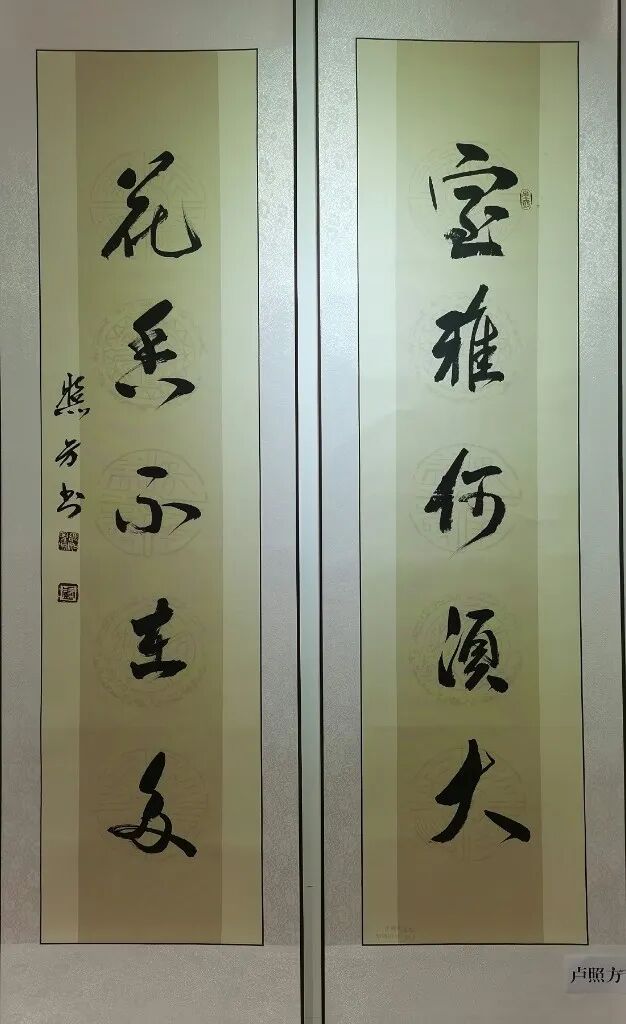 室雅何须大
花香不在多
照方书
卢照方